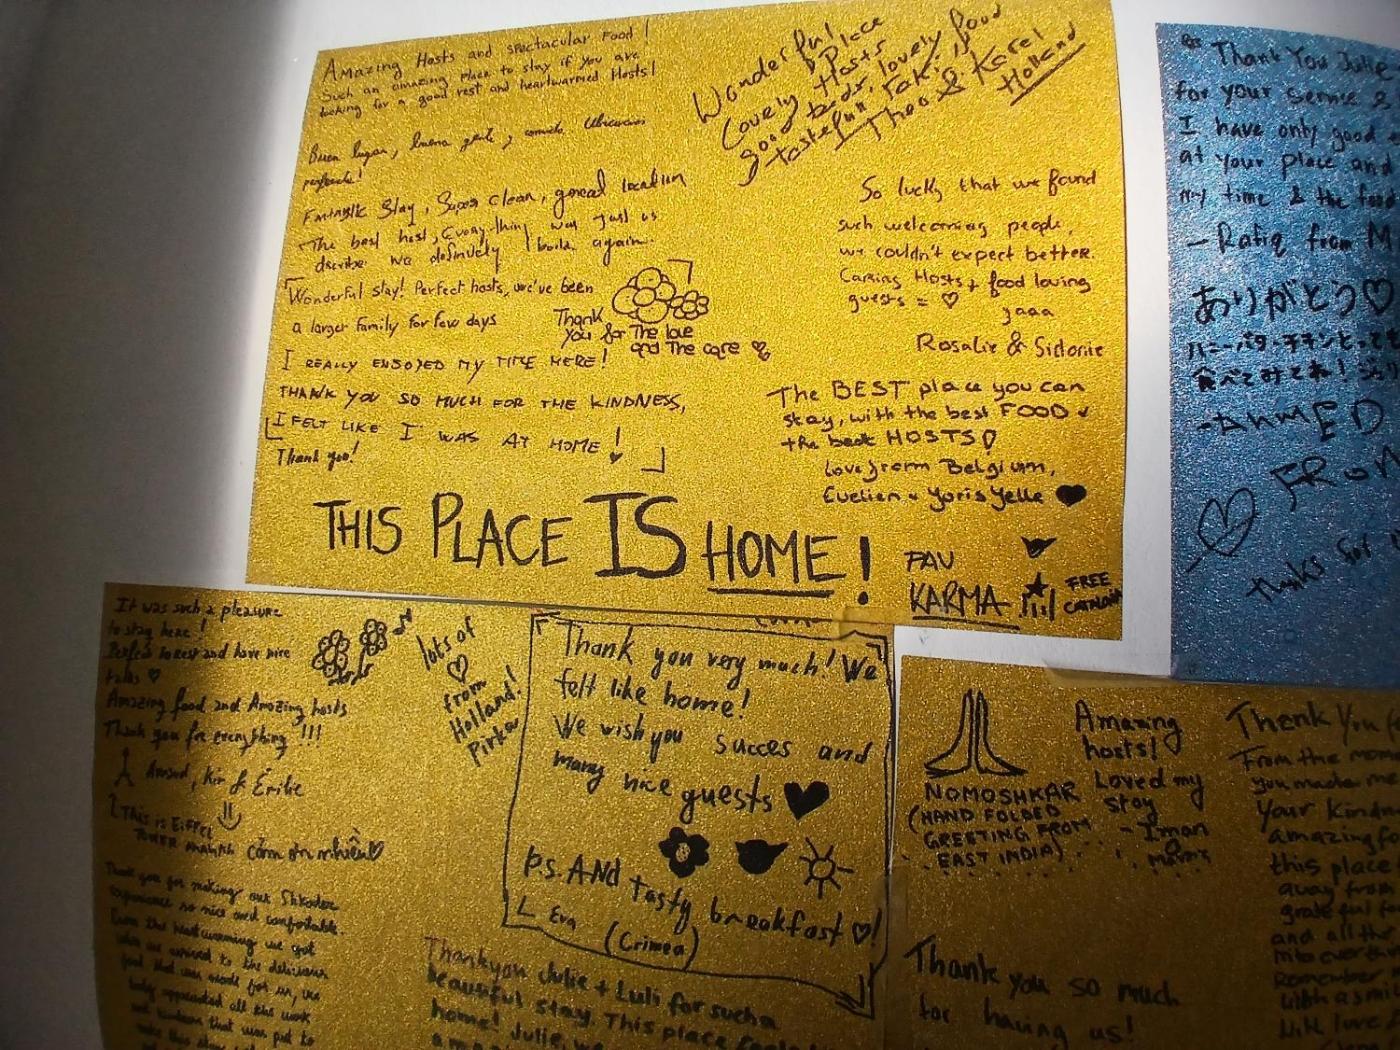 Amazing Hosts and spectacular Food!
Such an amazing place to stay if you are
looking for a good rest and heartwarmed Hosts!
Buen lugar, buena gente, comida. Ubicacion
perfecta!
Fantastic Stay, Super clean, location
The best host, Everything was just us
dscribe. we definively back again.
Wonderful stay! Perfect hosts, we've been
a larger family for few days
Thank
you for The love
and The care
I REALLY ENJOYED MY TIME HERE!
THANK YOU SO MUCH FOR THE KINDNESS,
I FELT LIKE I WAS AT HOME!
Thank you!
Wonderful
Place
Lovely Hosts
good beds, lovely food
tastefull
Theo & Karel
Holland
So lucky that we found
such welcoming people,
we couldn't expect better.
Caring Hosts + food loving
guests = ♡
yaaa
Rosalie & Sidonie
The BEST place you can
stay, with the best FOOD &
the best HOSTS
Love from Belgium,
Evelien & Yoris Yelle ♥
THIS PLACE IS HOME!
PAU
KARMA
FREE
It was such a pleasure
to stay here!
Perfect to rest and have nice
talks ♡
Amazing food and Amazing hosts
Thank you for everything!!!
Kir & Émilie
THIS IS EIFFEL
TOWER
cảm ơn nhiều♡
lots of
♡
from
Holland!
Pirka
Thank you very much! We
felt like home!
We wish you succes and
many nice guests ♥
p.s. AND tasty breakfast ♡!
Eva (Crimea)
Thank you for making our Shkoder
experience so nice and comfortable.
From the heartwarming we got
when we arrived to the delicious
food that was made for us, we
truly appreciated all the work
and kindness that was put to
make this
Thankyou Julie + Luli for such a
beautiful stay. This place feels
home! Julie, we
Amazing
hosts!
Loved my
stay
- Iman
NOMOSHKAR
(HAND FOLDED
GREETING FROM
EAST INDIA)
Thank you so much
for having us!
Thank You
From the
you made
Your
amazing
this place
away from
grateful
and all the
Remember
with a
With love
Thank You Julie
for your service &
I have only good
at your place and
my time & the food
- Rafiq from
ありがとう♡
ハニーバターチキンとっても
食べてみてね!
- AHMED
♡ FROM
thanks for